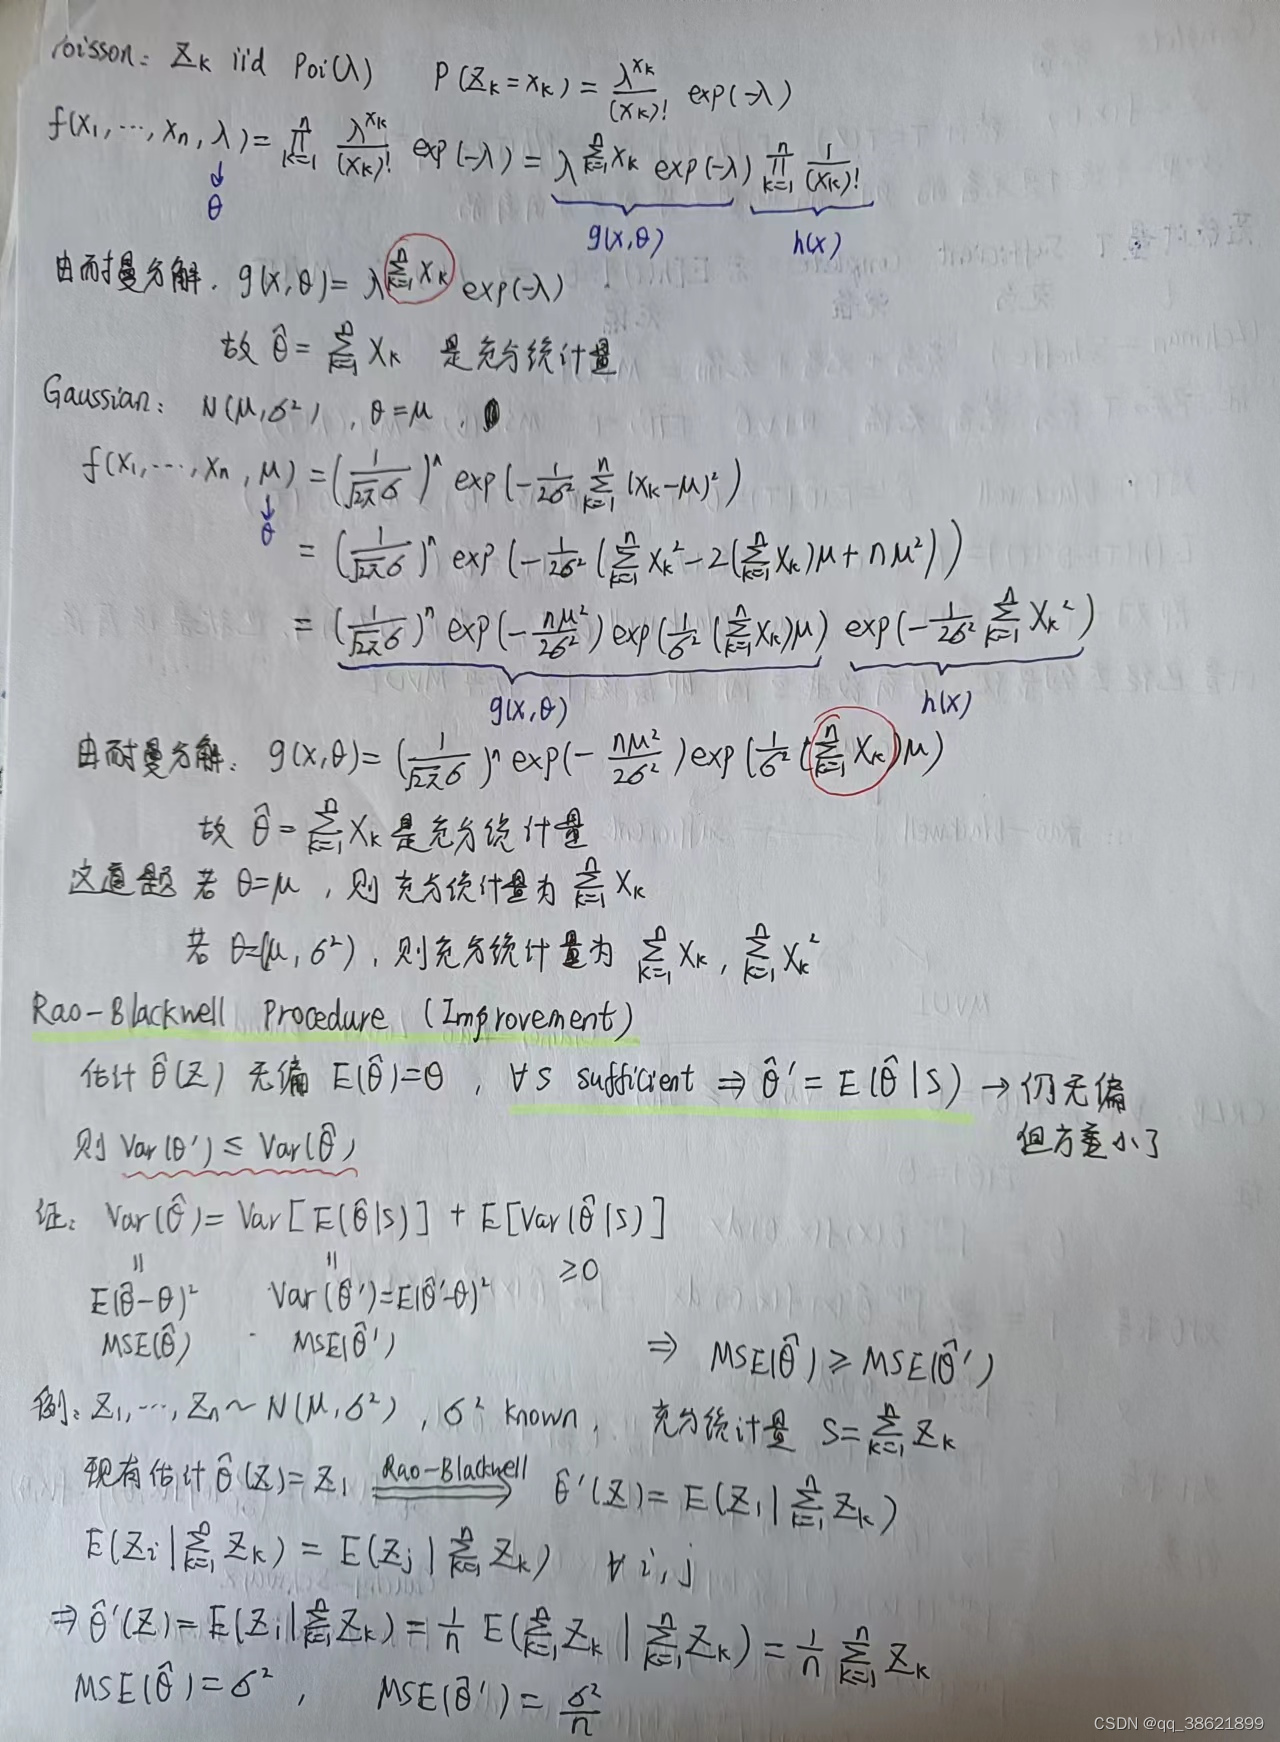 Poisson: Z_k iid Poi(λ) P(Z_k = x_k) = λ^{x_k}/(x_k)! exp(-λ)
f(x_1, ..., x_n, λ) = ∏_{k=1}^n λ^{x_k}/(x_k)! exp(-λ) = λ^{∑_{k=1}^n x_k} exp(-λ) ∏_{k=1}^n 1/(x_k)!
↓
θ g(x,θ) h(x)
由耐曼分解. g(x,θ) = λ^{∑_{k=1}^n x_k} exp(-λ)
故 θ̂ = ∑_{k=1}^n x_k 是充分统计量
Gaussian: N(μ,σ²), θ=μ,
f(x_1, ..., x_n, μ) = (1/√2π σ)^n exp(-1/2σ² ∑_{k=1}^n (x_k-μ)²)
↓
θ
= (1/√2π σ)^n exp(-1/2σ² (∑_{k=1}^n x_k² - 2(∑_{k=1}^n x_k)μ + nμ²))
= (1/√2π σ)^n exp(-nμ²/2σ²) exp(1/σ² (∑_{k=1}^n x_k)μ) exp(-1/2σ² ∑_{k=1}^n x_k²)
g(x,θ) h(x)
由耐曼分解: g(x,θ) = (1/√2π σ)^n exp(-nμ²/2σ²) exp(1/σ² (∑_{k=1}^n x_k)μ)
故 θ̂ = ∑_{k=1}^n x_k 是充分统计量
这道题 若 θ=μ, 则 充分统计量为 ∑_{k=1}^n x_k
若 θ=(μ,σ²), 则充分统计量为 ∑_{k=1}^n x_k, ∑_{k=1}^n x_k²
Rao-Blackwell Procedure (Improvement)
估计 θ̂(Z) 无偏 E(θ̂)=θ, ∀S sufficient ⇒ θ̂' = E(θ̂|S) → 仍无偏
但方差小了
则 Var(θ') ≤ Var(θ̂)
证: Var(θ̂) = Var[E(θ̂|S)] + E[Var(θ̂|S)]
|| || ≥0
E(θ̂-θ)² Var(θ̂')=E(θ̂'-θ)²
MSE(θ̂) MSE(θ̂') ⇒ MSE(θ̂) ≥ MSE(θ̂')
例: Z_1, ..., Z_n ~ N(μ,σ²), σ² known, 充分统计量 S=∑_{k=1}^n Z_k
现有估计 θ̂(Z) = Z_1 Rao-Blackwell ⟹ θ̂'(Z) = E(Z_1|∑_{k=1}^n Z_k)
E(Z_i|∑_{k=1}^n Z_k) = E(Z_j|∑_{k=1}^n Z_k) ∀ i, j
⇒ θ̂'(Z) = E(Z_1|∑_{k=1}^n Z_k) = 1/n E(∑_{k=1}^n Z_k | ∑_{k=1}^n Z_k) = 1/n ∑_{k=1}^n Z_k
MSE(θ̂) = σ², MSE(θ̂') = σ²/n
CSDN @qq_38621899